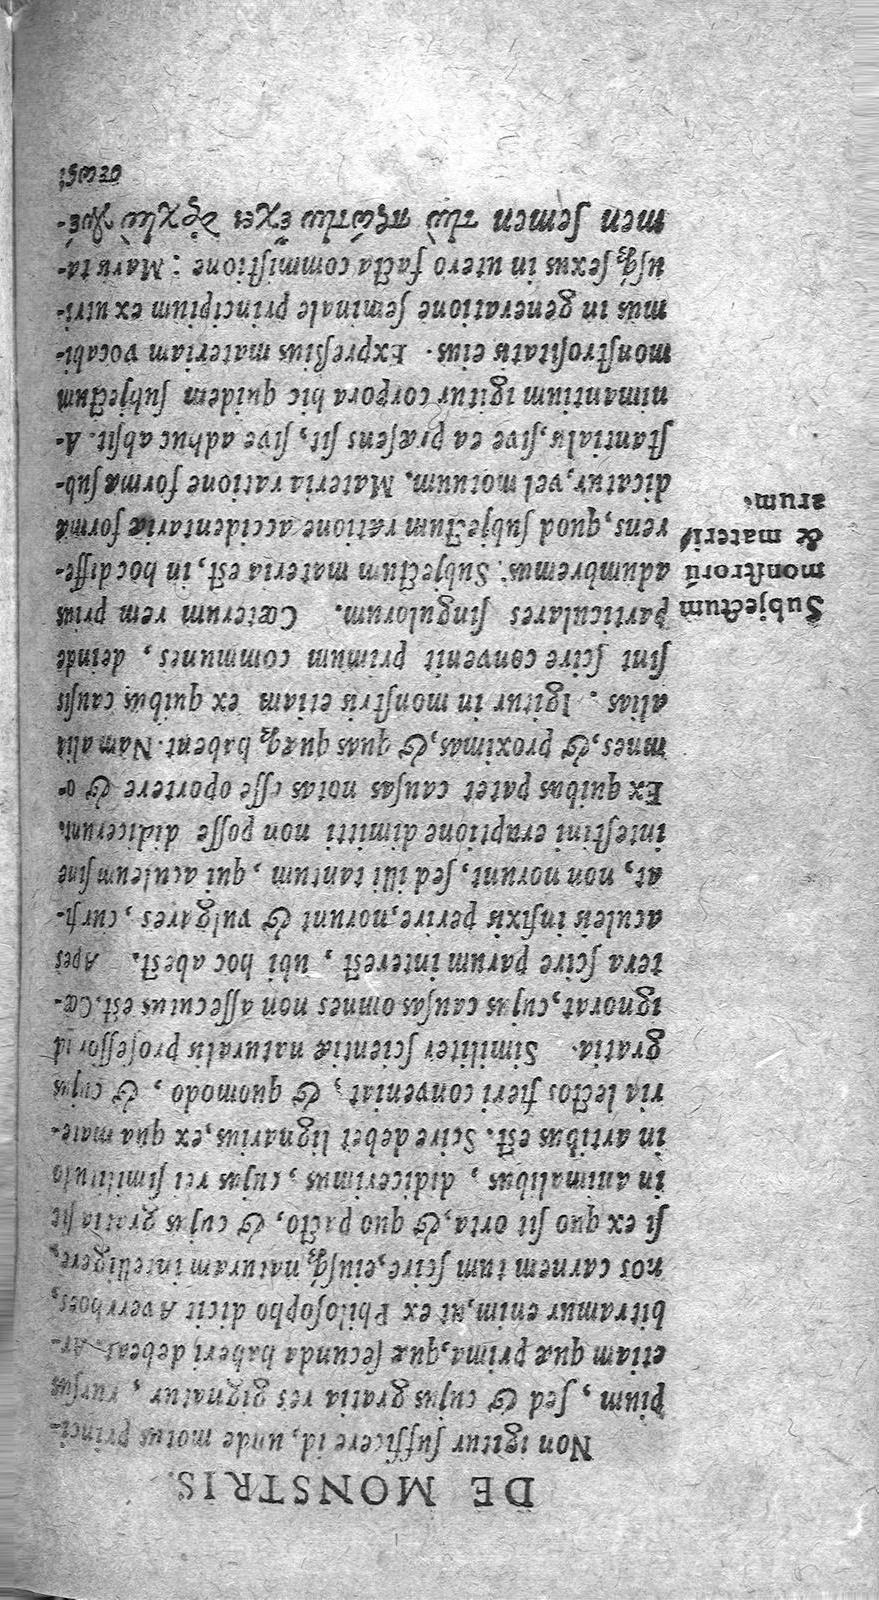 DE MONSTRIS.
Non igitur sufficere id, unde motus princi-
pium, sed & cujus gratia res gignatur, rursus
etiam quæ prima, quæ secunda haberi debeat. Ar-
bitramur enim, ut ex Philosopho dicit Averrhoes,
nos carnem tum scire, eiusq́; naturam intelligere,
si ex quo sit orta, & quo pacto, & cujus gratia sit
in animalibus, didicerimus, cujus rei similitudo
in artibus est. Scire debet lignarius, ex qua mate-
ria lectos fieri conveniat, & quomodo, & cujus
gratia. Similiter scientiæ naturalis professor id
ignorat, cujus causas omnes non assecutus est. Cæ-
tera scire parum interest, ubi hoc abest. Apes
aculeis infixis perire, norunt & vulgares, cur fi-
at, non norunt, sed illi tantum, qui aculeum sine
intestini eruptione dimitti non posse didicerunt.
Ex quibus patet causas notas esse oportere & o-
mnes, & proximas, & quas quæq; habent. Nam alia
alias. Igitur in monstris etiam ex quibus causis
sint scire convenit primum communes, deinde
particulares singulorum. Cæterum rem prius
adumbremus. Subjectum materia est, in hoc diffe-
rens, quod subjectum ratione accidentariæ formæ
dicatur, vel motuum. Materia ratione formæ sub-
stantialis, sive ea præsens sit, sive adhuc absit. A-
nimantium igitur corpora hic quidem subjectum
monstrositatis eius. Expreßius materiam vocabi-
mus in generatione seminale principium ex utri-
usq́; sexus in utero facta commistione: Maris ta-
men semen τὴν πρώτην ἔχει ἀρχὴν γενέ-
σεως;
Subjectum
monstrorū
& materia
arum.